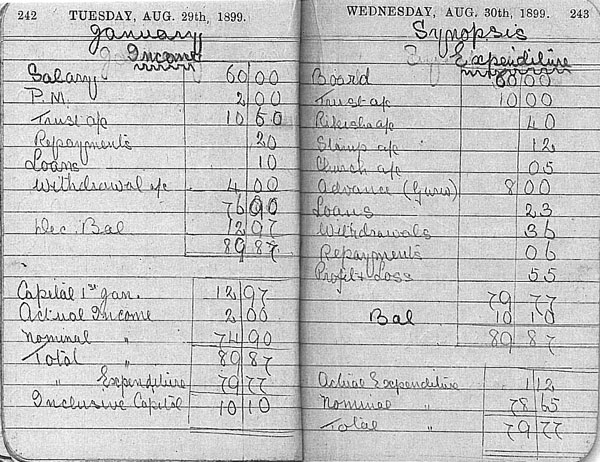 242 TUESDAY, AUG. 29th, 1899.
January
Income
Salary 60 00
P.M. 2 00
Trust a/c 10 60
Repayments 20
Loans 10
Withdrawal a/c 4 00
76 90
Dec. Bal 12 97
89 87
Capital 1st Jan. 12 97
Actual Income 2 00
Nominal " 74 90
Total " 89 87
" Expenditure 79 77
Inclusive Capital 10 10
WEDNESDAY, AUG. 30th, 1899. 243
Synopsis
Expenditure
Board 60 00
Trust a/c 10 00
Rikisha a/c 40
Stamp a/c 12
Church a/c 05
Advance (Guru) 8 00
Loans 23
Withdrawals 36
Repayments 06
Profit & Loss 55
79 77
Bal 10 10
89 87
Actual Expenditure 1 12
Nominal " 78 65
Total " 79 77